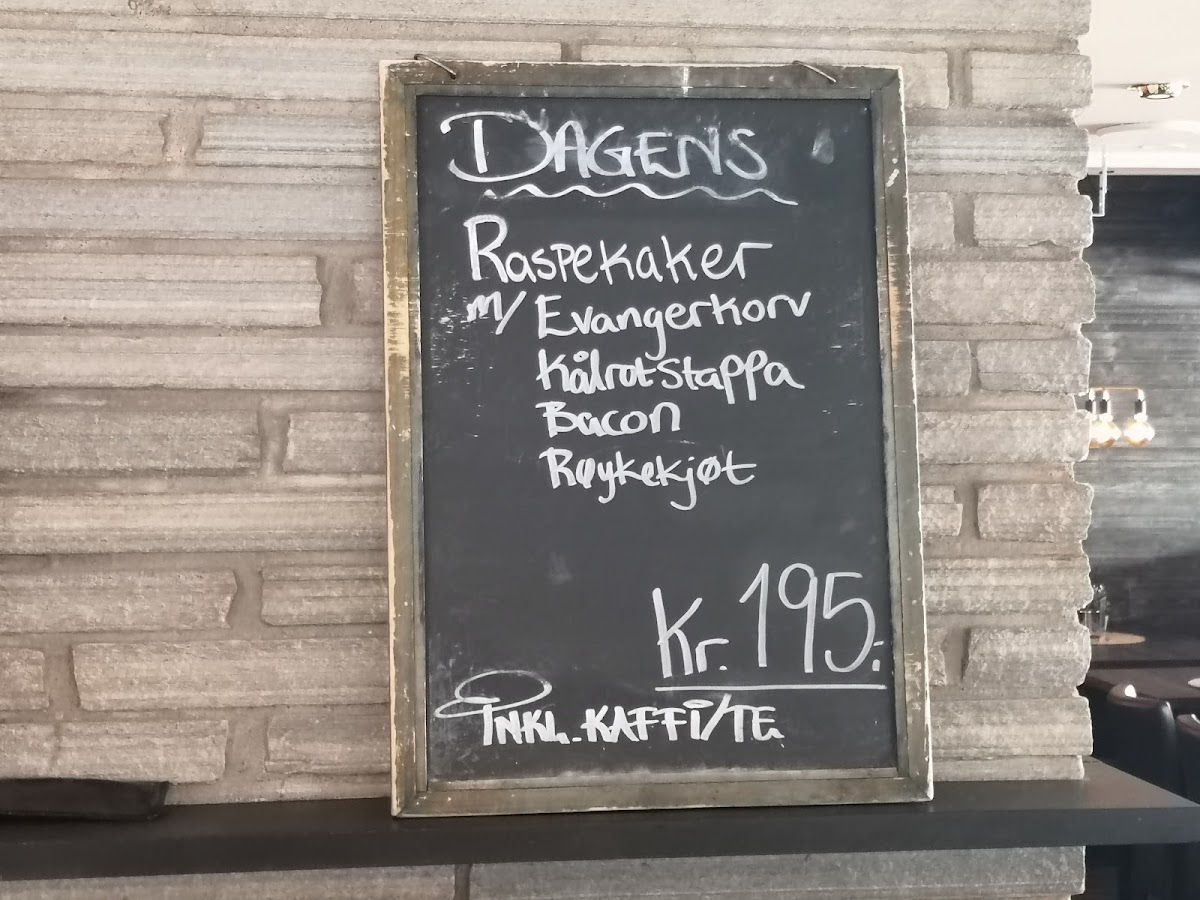 DAGENS
Raspekaker
m/ Evangerkorv
Kålrotstappa
Bacon
Røykekjøt
Kr. 195:-
INKL. KAFFI/TE.